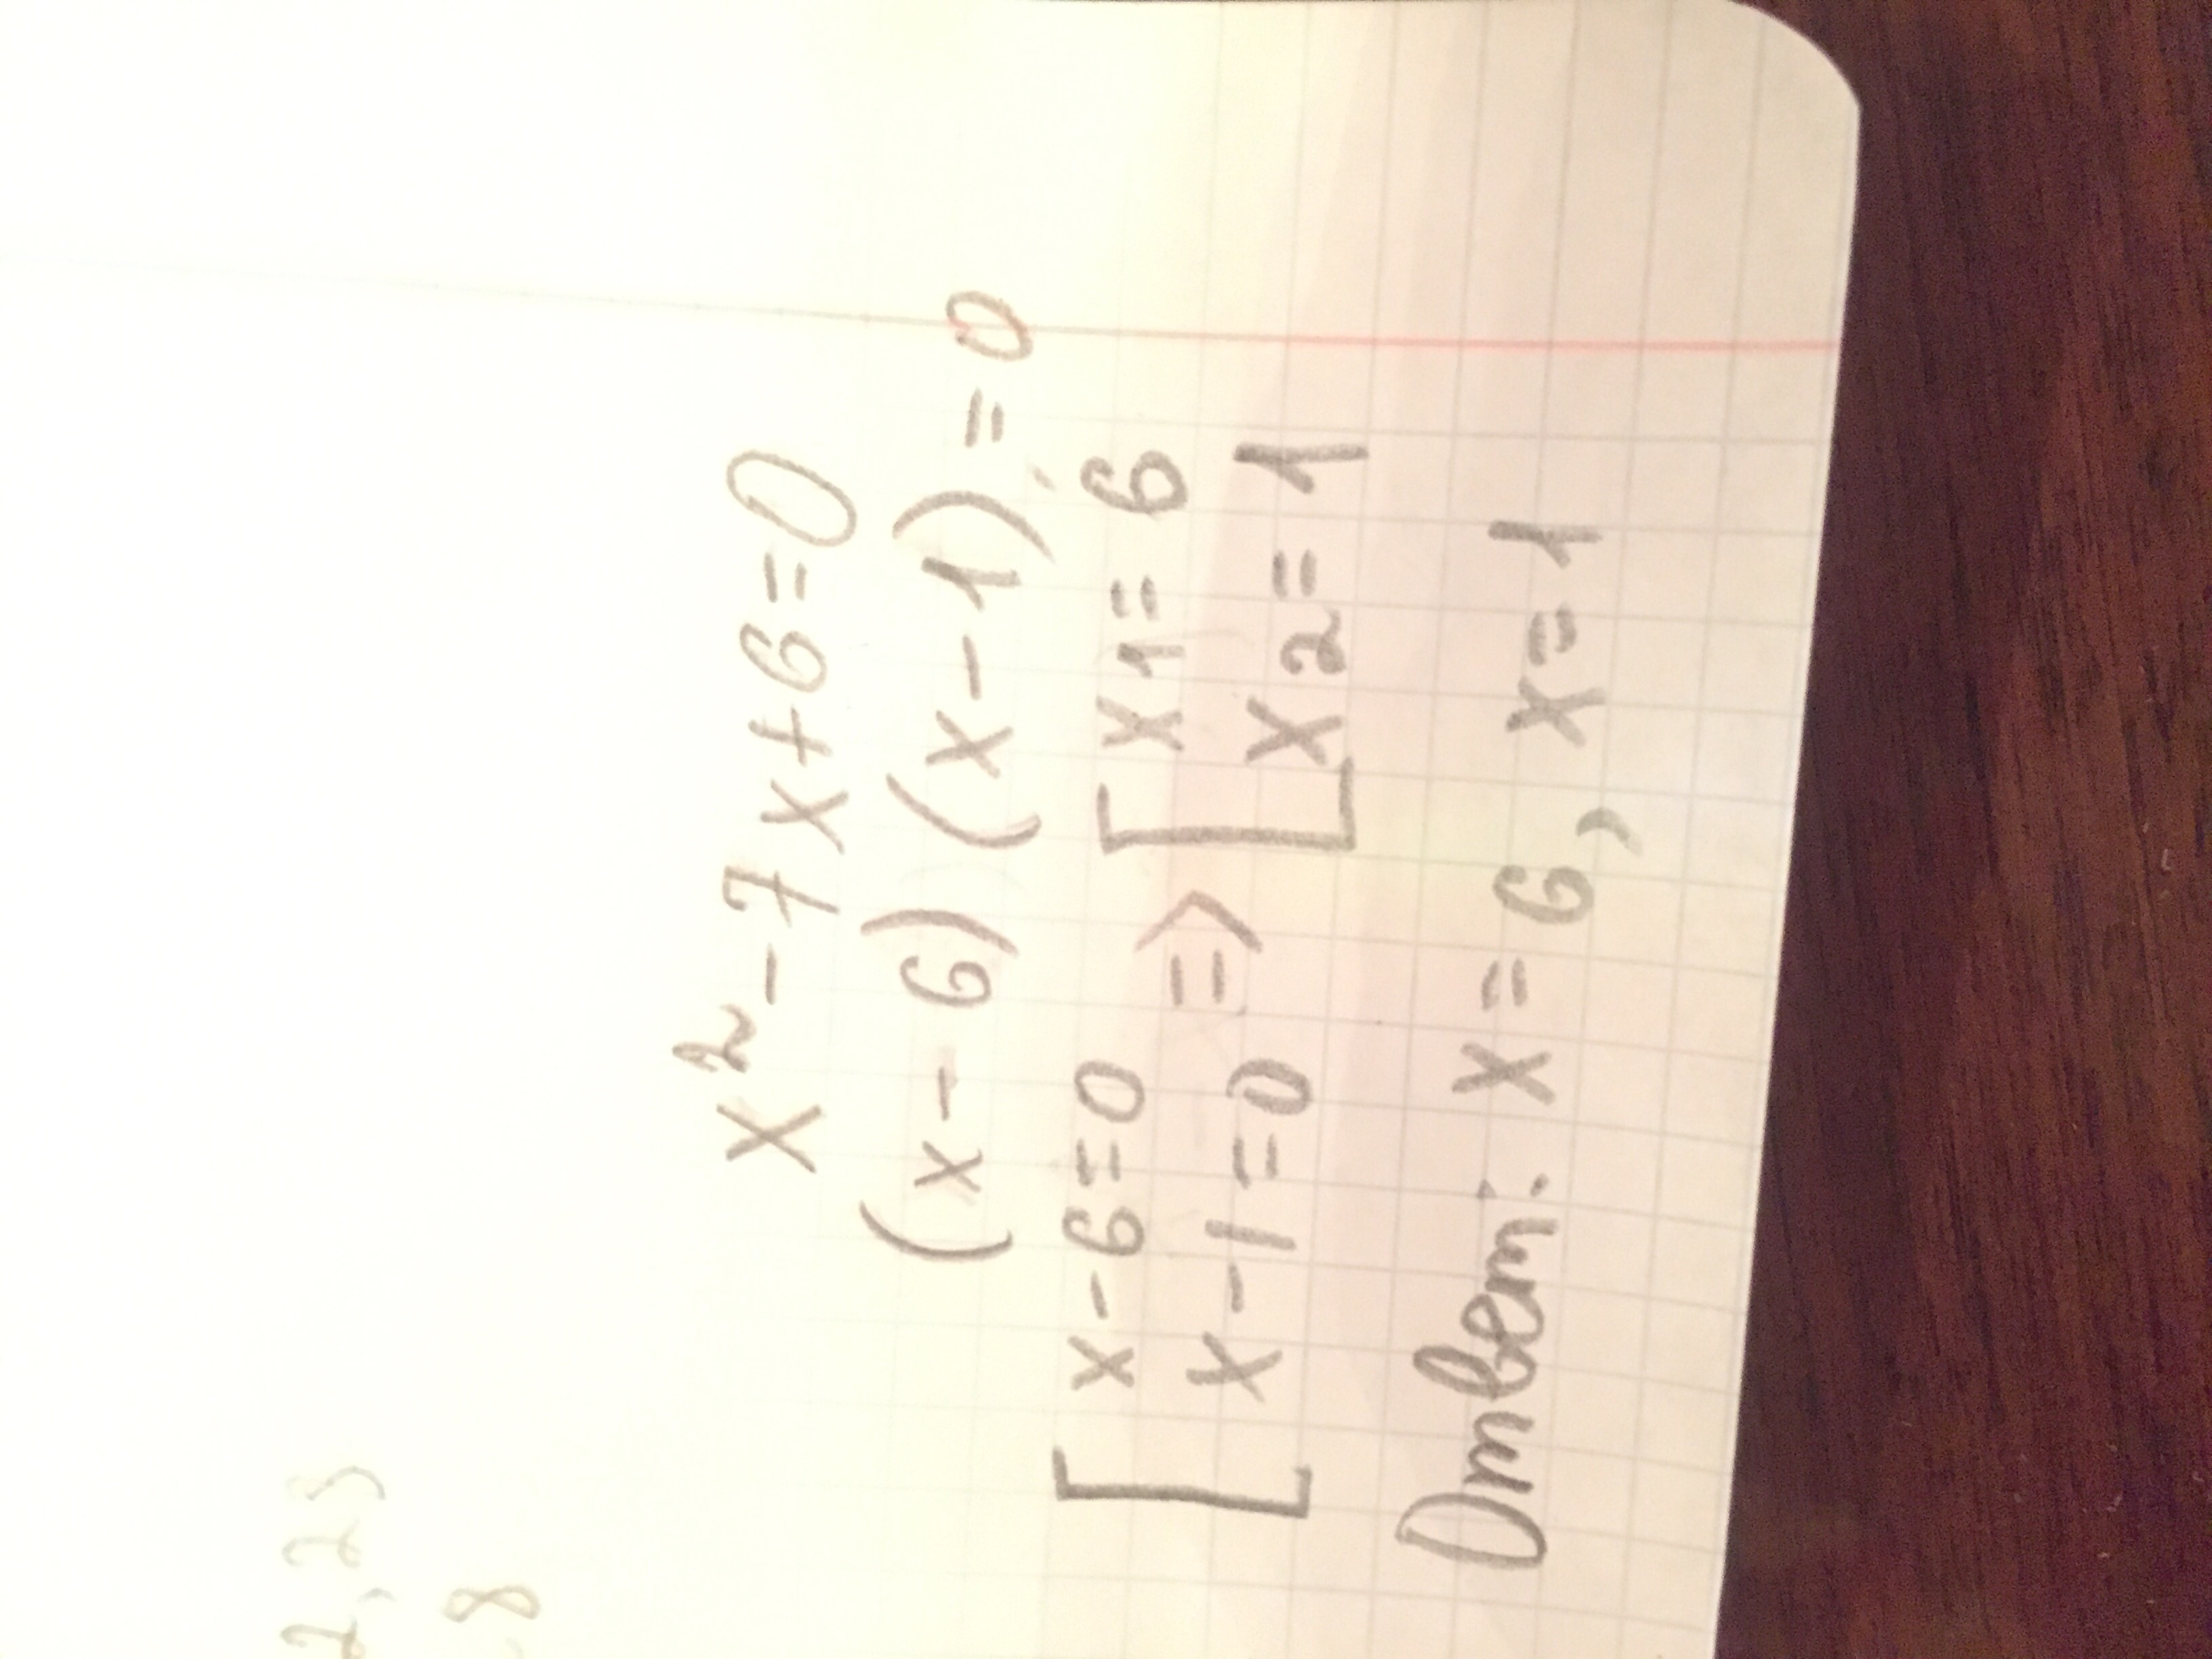 2,23
8
x²-7x+6=0
(x-6)(x-1)=0
[x-6=0 => [x1=6
[x-1=0 [x2=1
Ответ: x=6, x=1